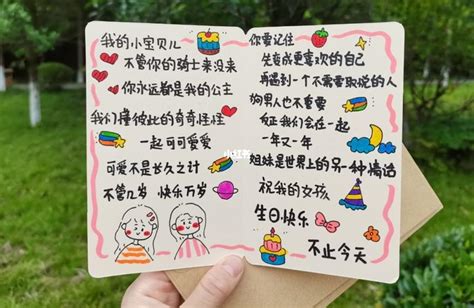 我的小宝贝儿
不管你的骑士来没来
你永远都是我的公主
我们撑彼此的奇奇怪怪
一起可可爱爱
可爱不是长久之计
不管几岁 快乐万岁
你要记住
先变成更喜欢的自己
再遇到一个不需要取悦的人
狗男人也不重要
反正我们会在一起
一年又一年
姐妹是世界上的另一种情话
祝我的女孩
生日快乐
不止今天
小红书